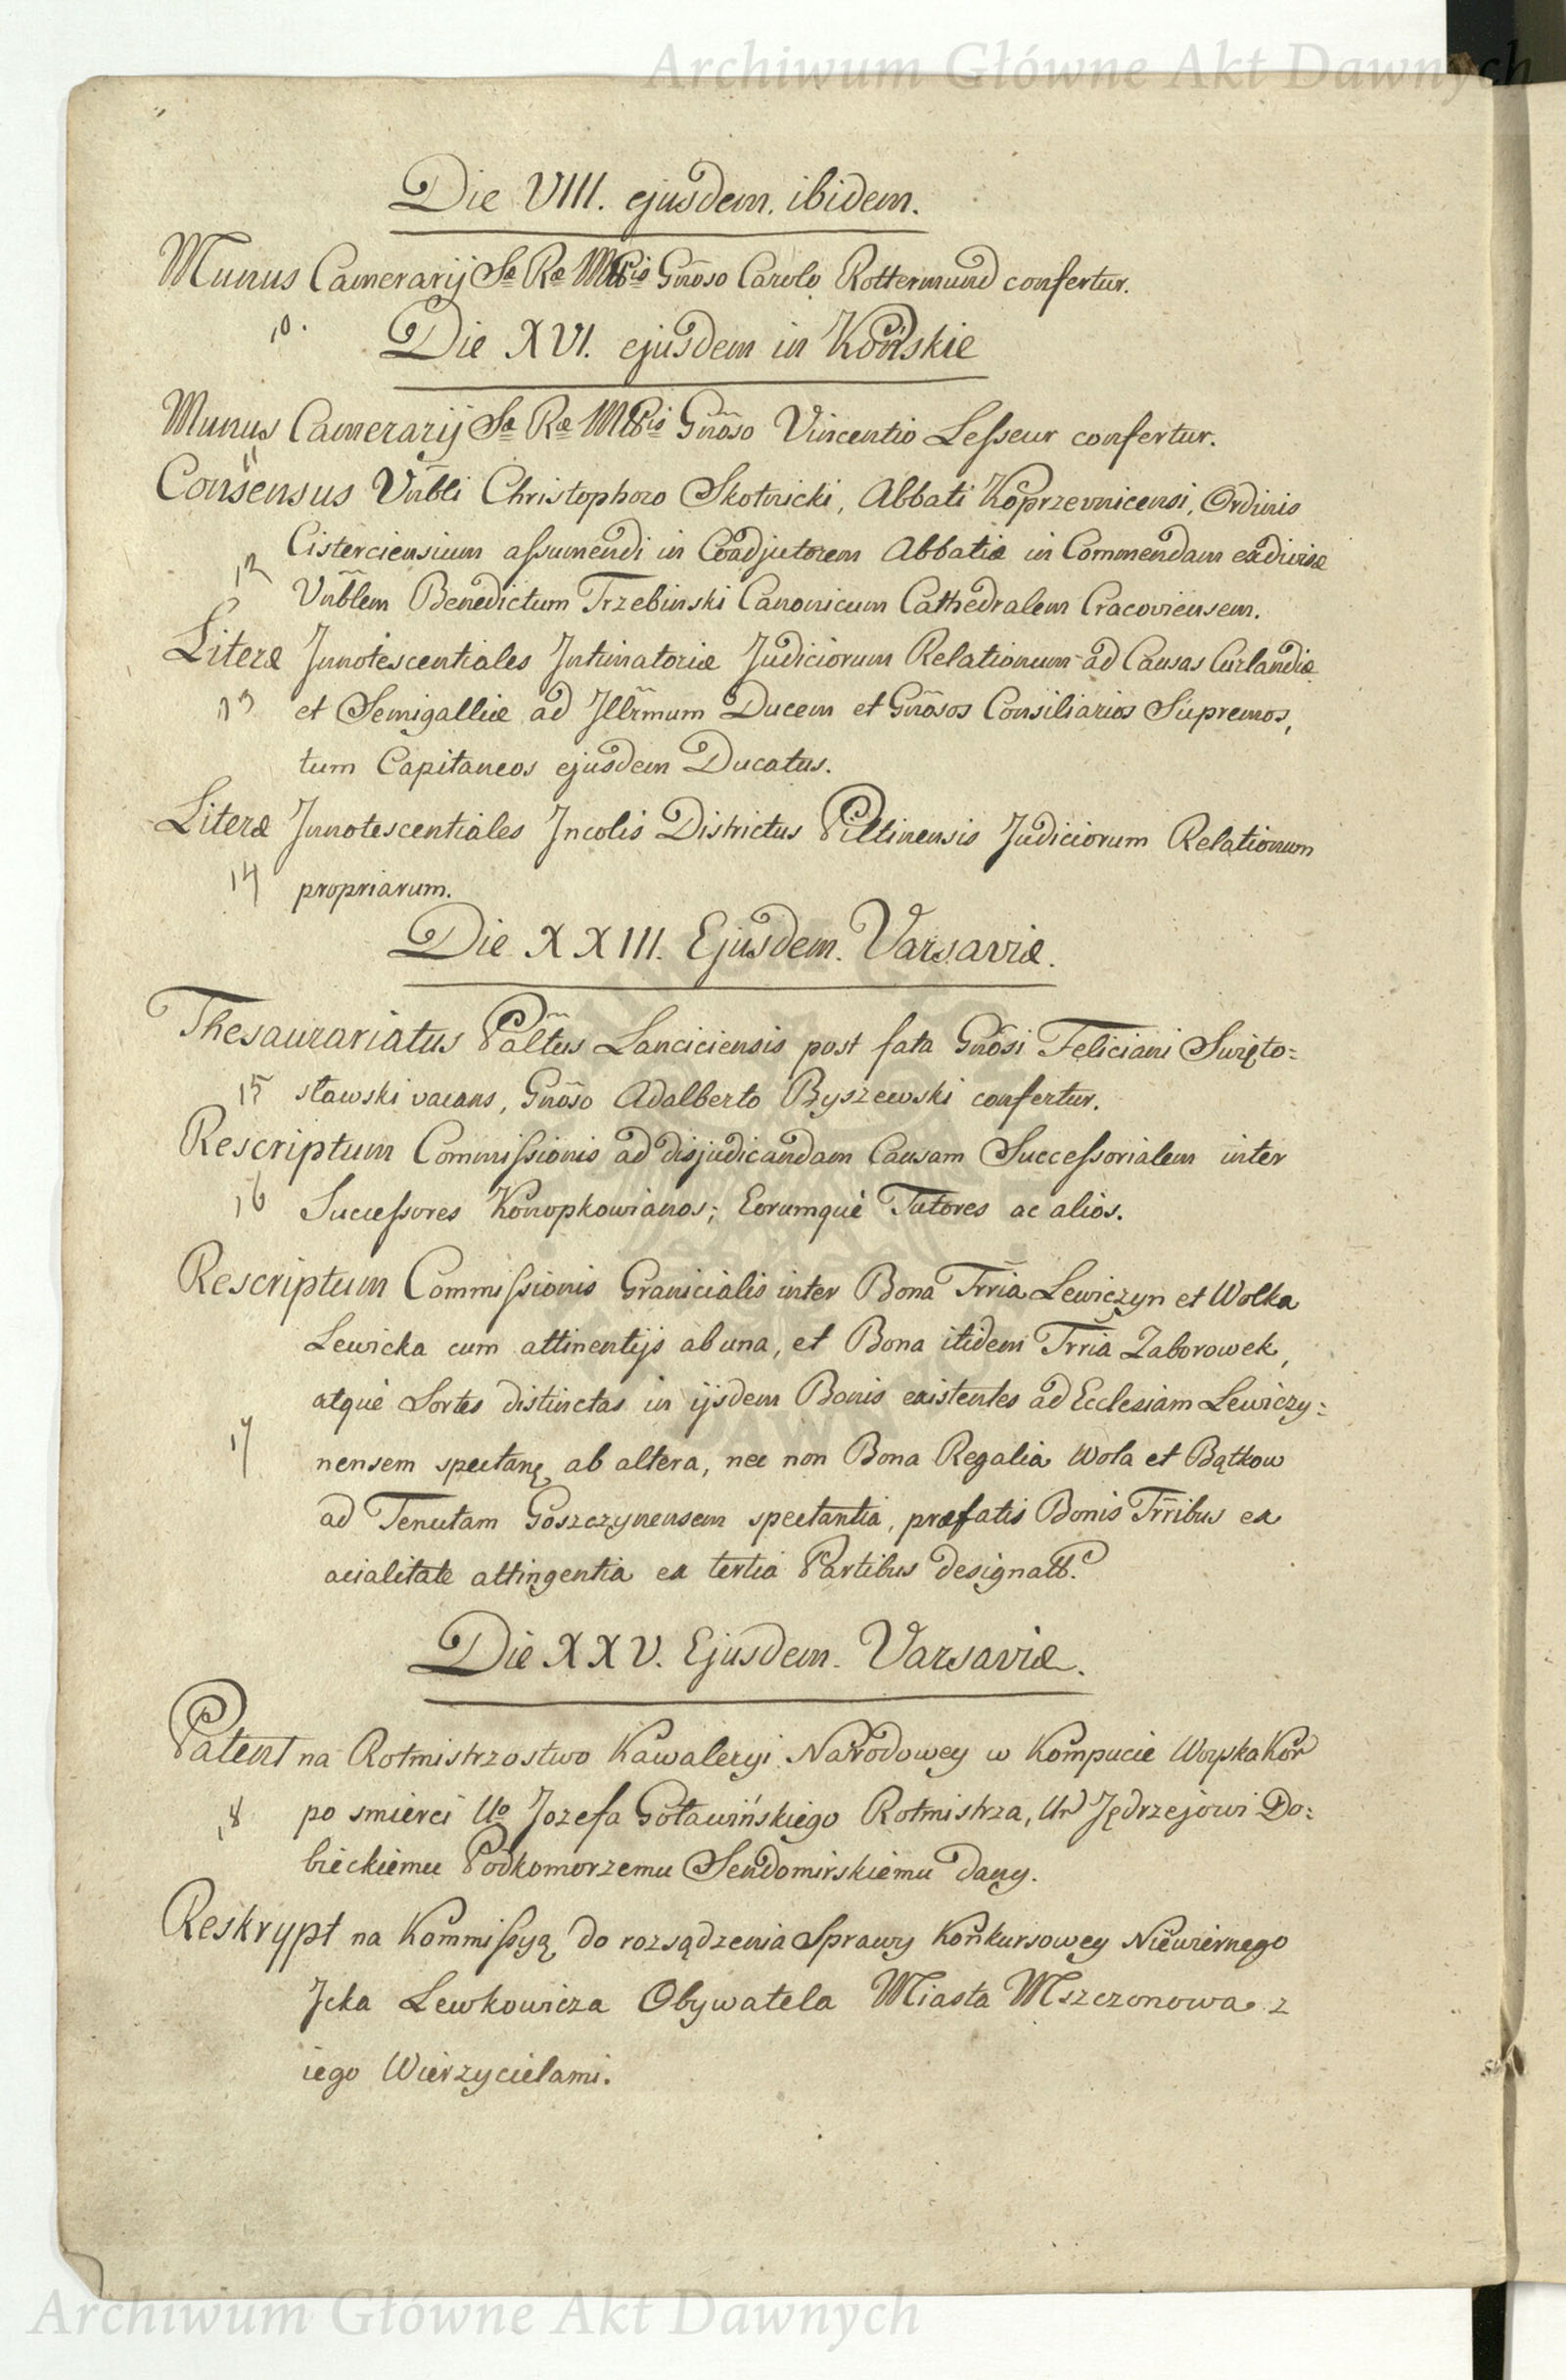 Archiwum Główne Akt Dawnych
Die VIII. ejusdem. ibidem.
Munus Camerarij Sæ Ræ Mttis Gñoso Carolo Rottermund confertur.
10.
Die XVI. ejusdem in Końskie
Munus Camerarij Sæ Ræ Mttis Gñoso Vincentio Lesseur confertur.
11
Consensus Vñbli Christophoro Skotnicki, Abbati Koprzevnicensi, Ordinis
Cisterciensium assumendi in Coadjutorem Abbatiæ in Commendam exdivisæ
12
Vñblem Benedictum Trzebinski Canonicum Cathedralem Cracoviensem.
Literæ Innotescentiales Intimatoriæ Judiciorum Relationum ad Causas Curlandiæ
13 et Semigalliæ ad Illr̃mum Ducem et Gñosos Consiliarios Supremos,
tum Capitaneos ejusdem Ducatus.
Literæ Innotescentiales Incolis Districtus Piltinensis Judiciorum Relationum
14 propriarum.
Die XXIII. Ejusdem. Varsaviæ.
Thesaurariatus Palt̃us Lanciciensis post fata Gñosi Feliciani Święto=
15 sławski vacans, Gñoso Adalberto Byszewski confertur.
Rescriptum Commissionis ad disjudicandam Causam Successorialem inter
16 Successores Konopkowianos; Eorumque Tutores ac alios.
Rescriptum Commissionis Granicialis inter Bona Trr̃ia Lewiczyn et Wolka
Lewicka cum attinentijs ab una, et Bona itidem Trr̃ia Zaborowek,
atque Sortes distinctas in ijsdem Bonis existentes ad Ecclesiam Lewiczy=
17 nensem spectanę ab altera, nec non Bona Regalia Wola et Bątkow
ad Tenutam Goszczynensem spectantia, præfatis Bonis Trr̃ibus ex
acialitate attingentia ex tertia Partibus designatt.
Die XXV. Ejusdem. Varsaviæ.
Patent na Rotmistrzostwo Kawaleryi Narodowey w Kompucie Woyska Kor
18 po smierci Uo Jozefa Goławińskiego Rotmistrza, Ur Jędrzejowi Do=
bieckiemu Podkomorzemu Sendomirskiemu dany.
Reskrypt na Kommissyą do rozsądzenia Sprawy Konkursowey Niewiernego
Icka Lewkowicza Obywatela Miasta Mszczonowa z
iego Wierzycielami.
Archiwum Główne Akt Dawnych